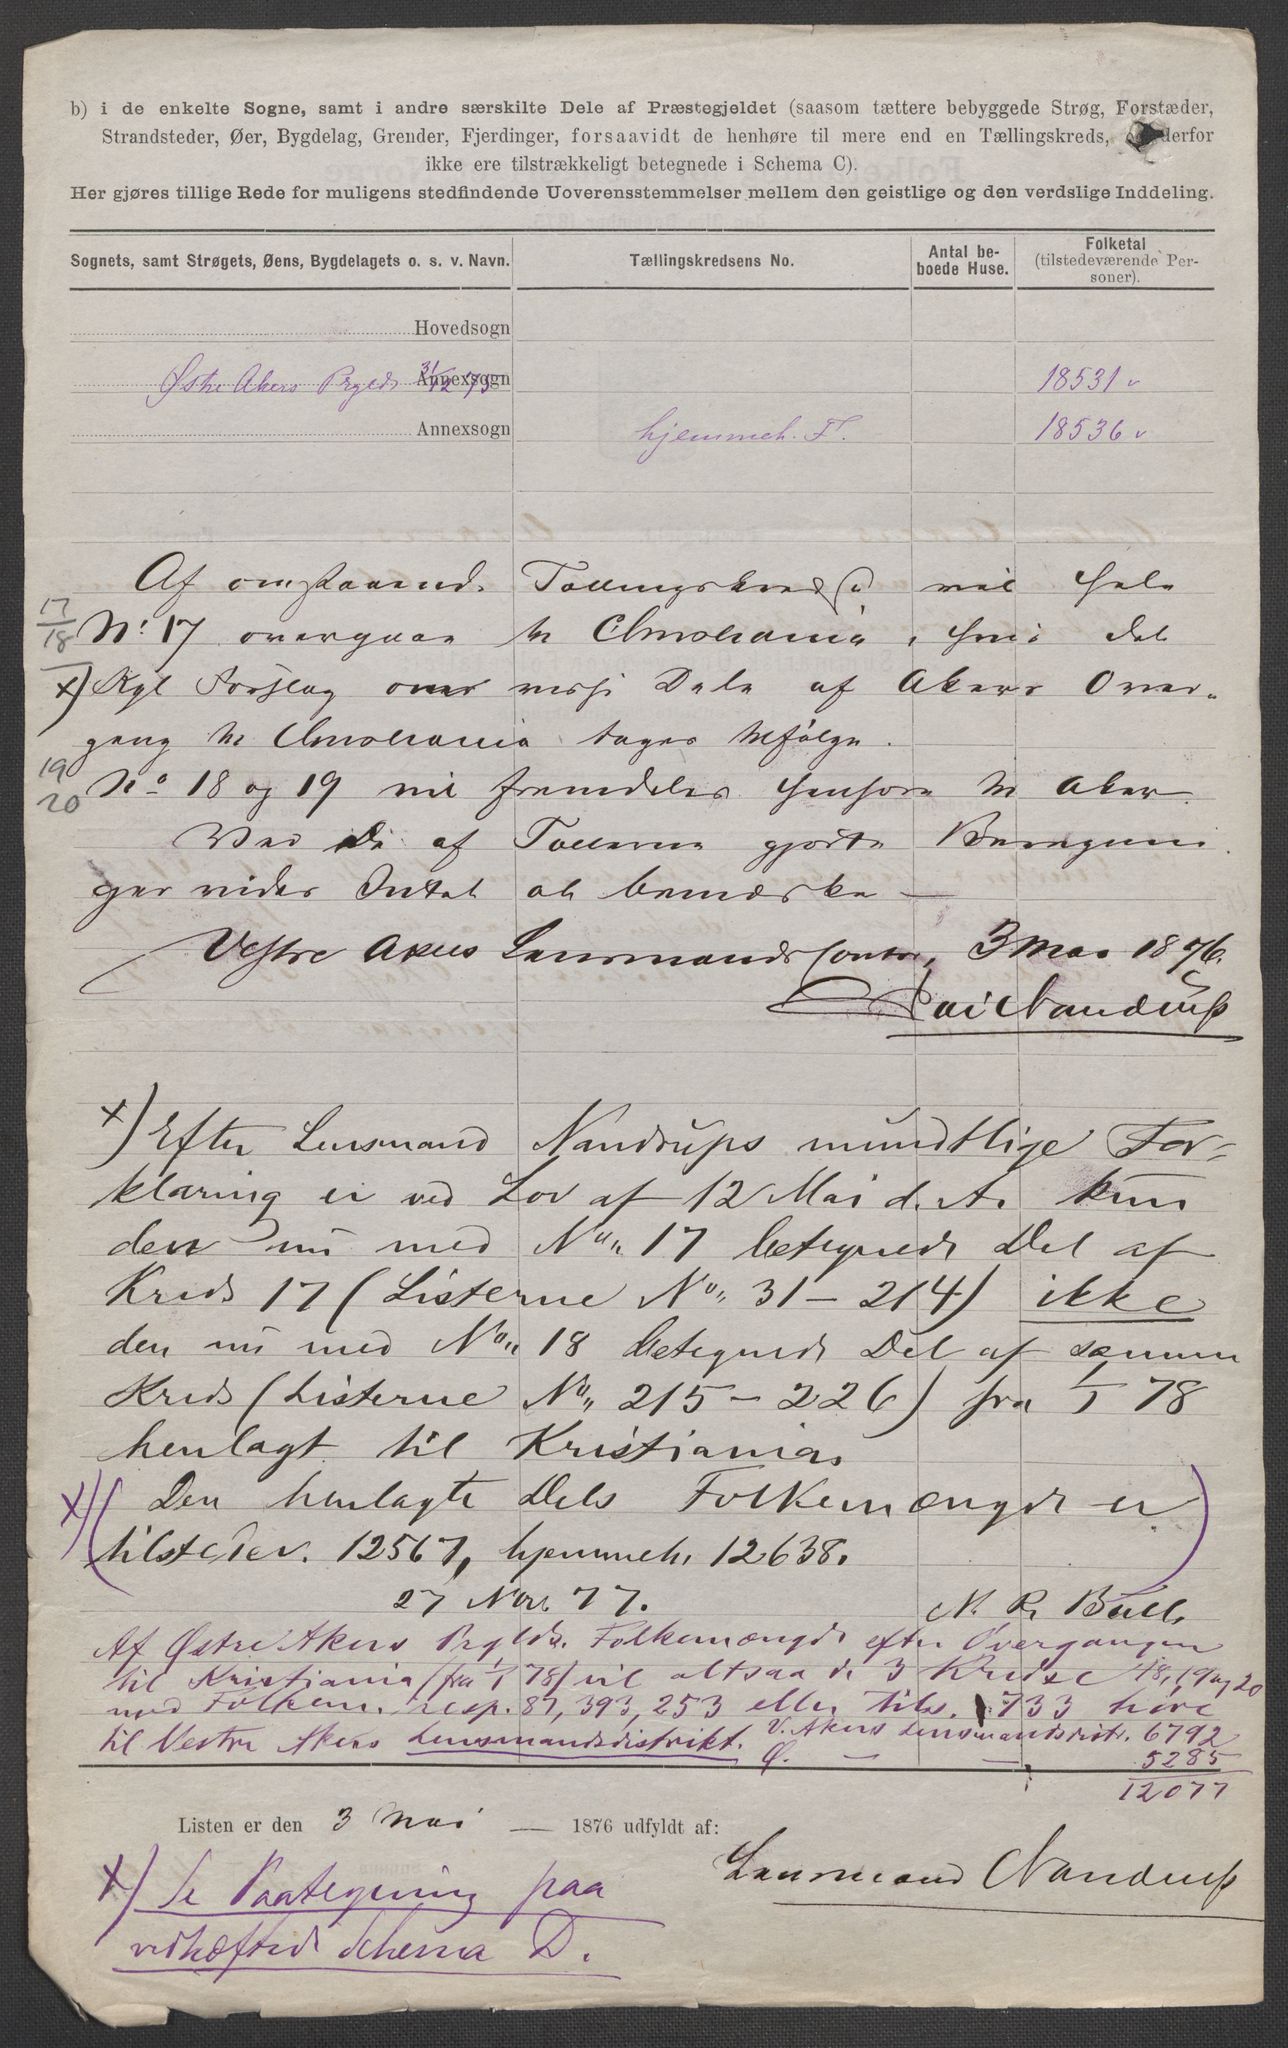 b) i de enkelte Sogne, samt i andre særskilte Dele af Præstegjeldet (saasom tættere bebyggede Strøg, Forstæder,
Strandsteder, Øer, Bygdelag, Grender, Fjerdinger, forsaavidt de henhøre til mere end en Tællingskreds, derfor
ikke ere tilstrækkeligt betegnede i Schema C).
Her gjøres tillige Rede for muligens stedfindende Uoverensstemmelser mellem den geistlige og den verdslige Inddeling.
Sognets, samt Strøgets, Øens, Bygdelagets o. s. v. Navn. Tællingskredsens No. Antal beboede Huse. Folketal (tilstedeværende Personer).
Hovedsogn
Østre Akers Prgld. 31/12 75 Annexsogn 18531 v
Annexsogn hjemmeh. F. 18536 v
Af omstaaende Tællingskredse vil hele
17/18 No 17 overgaa til Christiania, hvis det
x) Kgl Forslag over visse Dele af Akers Over-
gang til Christiania tages tilfølge.
19 20 No 18 og 19 vil fremdeles henhøre til Aker.
Ved de af Tællerne gjorte Beregnin
ger vides Intet at bemærke —
Vestre Akers Lensmandscontor, 3 Mai 1876.
Nandrup
x) Efter Lensmand Nandrups mundtlige For-
klaring er ved Lov af 12 Mai d. A. kun
den nu med No 17 betegnede Del af
Kreds 17 (Listerne No 31 – 214) ikke
den nu med No 18 betegnede Del af samme
Kreds (Listerne No 215 – 226) fra 1/1 78
henlagt til Kristiania.
x) (Den henlagte Dels Folkemængde er
tilstedev. 12567, hjemmeh. 12638.)
27 Nov. 77. N. R. Bull.
Af Østre Akers Prglds. Folkemængde efter Overgangen
til Kristiania (fra 1/1 78) vil altsaa de 3 Kredse 18, 19 og 20
med Folkem. resp. 87, 393, 253 eller tils. 733 høre
til Vestre Akers Lensmandsdistrikt. V. Akers Lensmandsdistr. 6792
Ø. — — 5285
12077
Listen er den 3 Mai — 1876 udfyldt af:
Lensmand Nandrup
x) Se Paategning paa
vedhæftede Schema D.